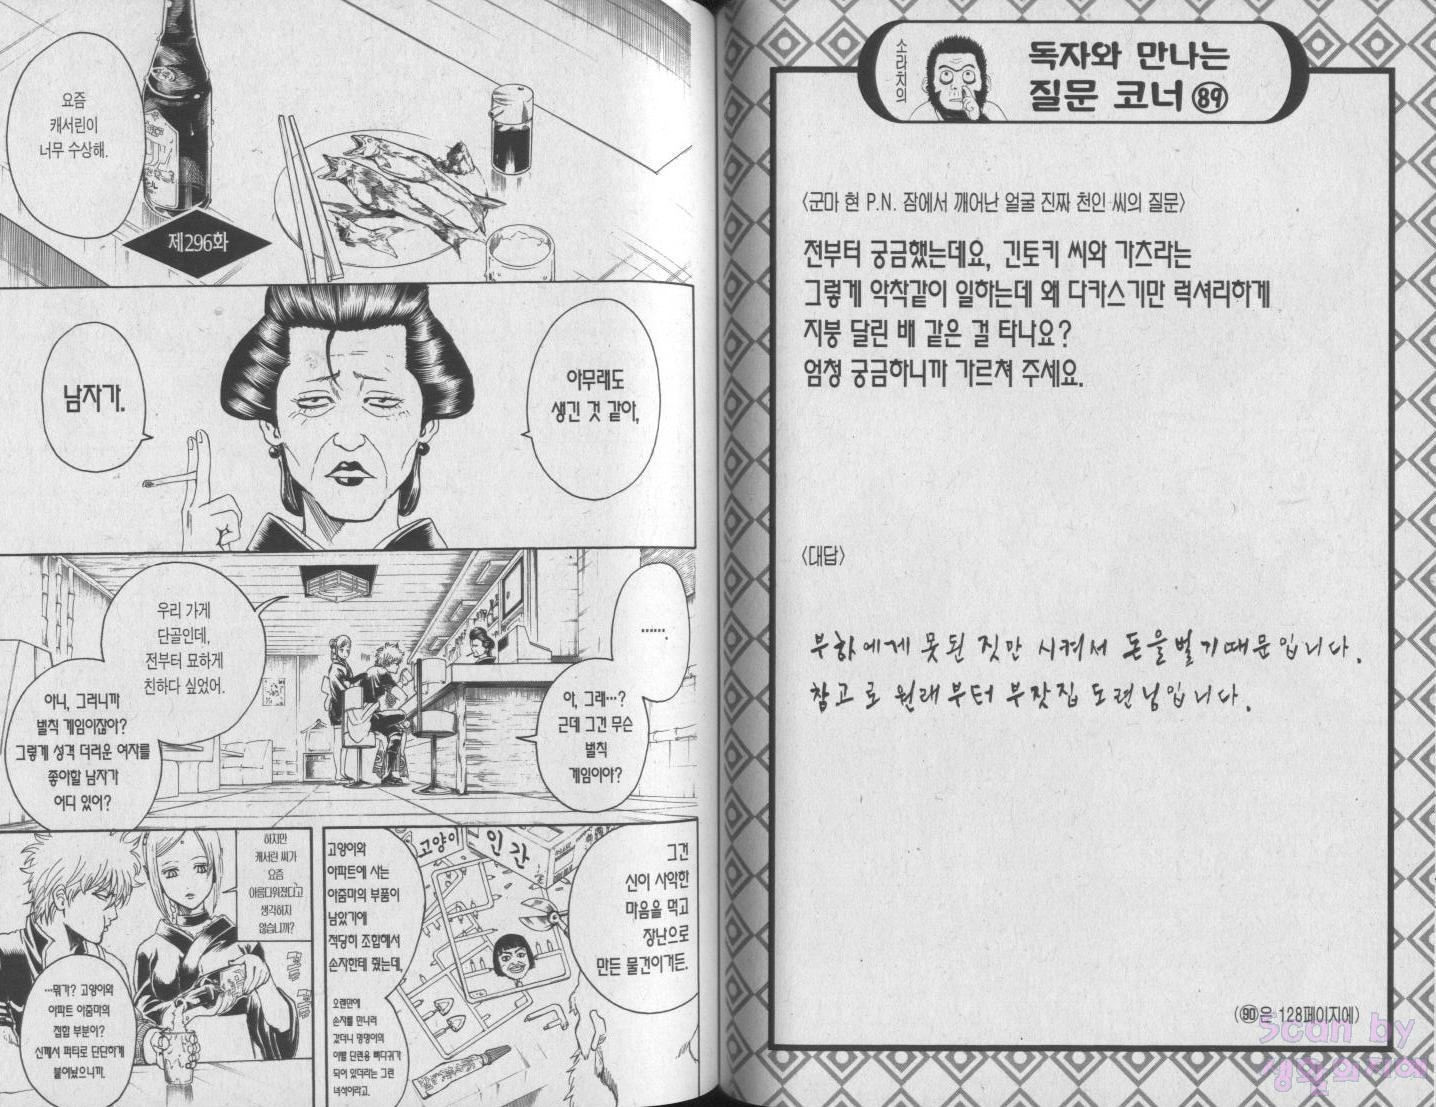 소라치의
독자와 만나는
질문 코너 89
〈군마 현 P.N. 잠에서 깨어난 얼굴 진짜 천인 씨의 질문〉
전부터 궁금했는데요, 긴토키 씨와 가츠라는
그렇게 악착같이 일하는데 왜 다카스기만 럭셔리하게
지붕 달린 배 같은 걸 타나요?
엄청 궁금하니까 가르쳐 주세요.
〈대답〉
부하에게 못된 짓만 시켜서 돈을벌기때문입니다.
참고로 원래부터 부잣집 도련님입니다.
(90은 128페이지에)
Scan by
생활의지혜
요즘
캐서린이
너무 수상해.
제296화
아무래도
생긴 것 같아,
남자가.
…….
아, 그래…?
근데 그건 무슨
벌칙
게임이야?
우리 가게
단골인데,
전부터 묘하게
친하다 싶었어.
아니, 그러니까
벌칙 게임이잖아?
그렇게 성격 더러운 여자를
좋아할 남자가
어디 있어?
그건
신이 사악한
마음을 먹고
장난으로
만든 물건이거든.
고양이
인간
고양이와
아파트에 사는
아줌마의 부품이
남았기에
적당히 조합해서
손자한테 줬는데,
오랜만에
손자를 만나러
갔더니 멍멍이의
이빨 단련용 뼈다귀가
되어 있더라는 그런
녀석이라고.
하지만
캐서린 씨가
요즘
아름다워졌다고
생각하지
않습니까?
…뭐가? 고양이와
아파트 아줌마의
접합 부분이?
신께서 퍼티로 단단하게
붙여놨으니까.